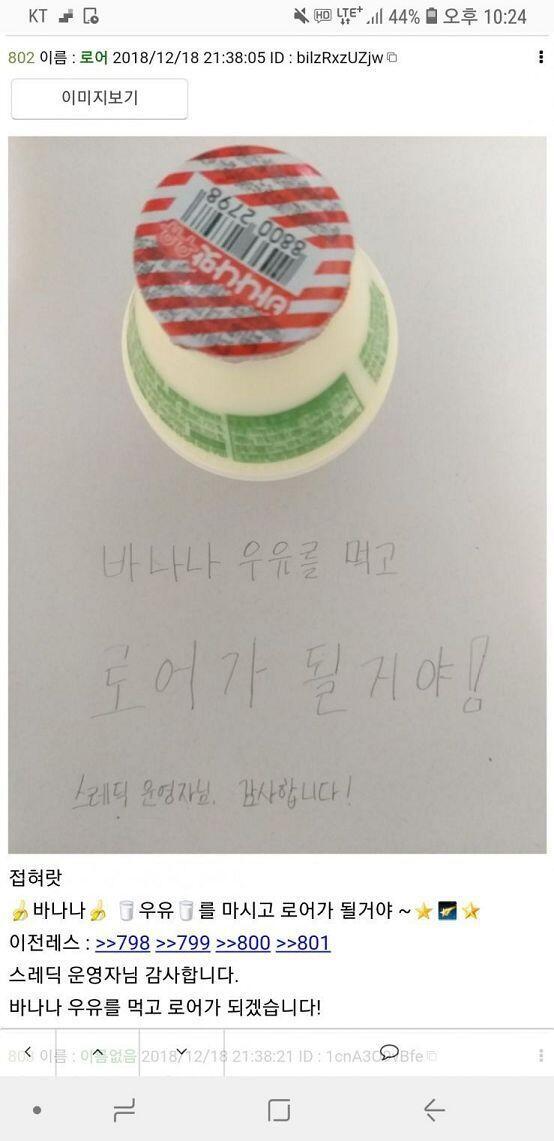 KT HD LTE+ 44% 오후 10:24
802 이름 : 로어 2018/12/18 21:38:05 ID : bilzRxzUZjw
이미지보기
8800 2798
바나나맛우유
바나나 우유를 먹고
로어가 될 거야!
스레딕 운영자님. 감사합니다!
접혀랏
🍌바나나🍌 🥛우유🥛를 마시고 로어가 될거야 ~⭐🌠⭐
이전레스 : >>798 >>799 >>800 >>801
스레딕 운영자님 감사합니다.
바나나 우유를 먹고 로어가 되겠습니다!
이름 : 이름없음 2018/12/18 21:38:21 ID :